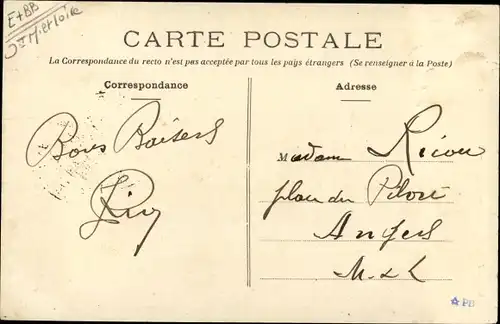 E+BB
CARTE POSTALE
La Correspondance du recto n'est pas acceptée par tous les pays étrangers (Se renseigner à la Poste)
Correspondance
Bons Baisers
Adresse
Madame Ricou
place du Pilori
Angers
M & L
PB